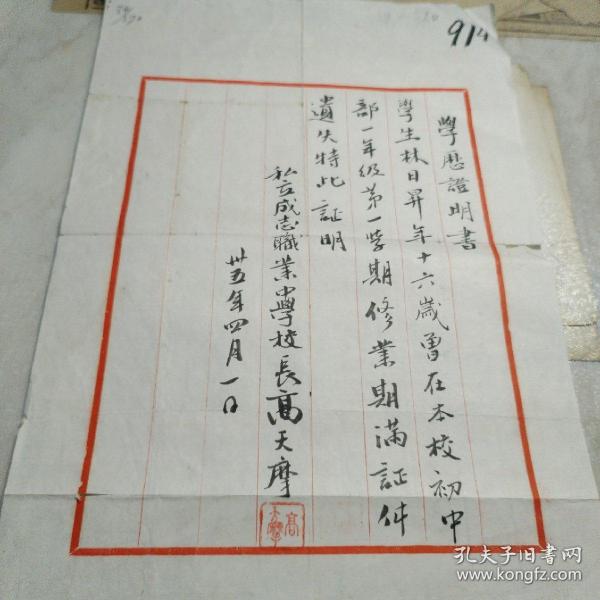 914
學歷證明書
學生林日昇年十六歲曾在本校初中
部一年級第一学期修業期滿証件
遺失特此証明
私立成志職業中學校長高天摩
卅五年四月一日
孔夫子旧书网
www.kongfz.com